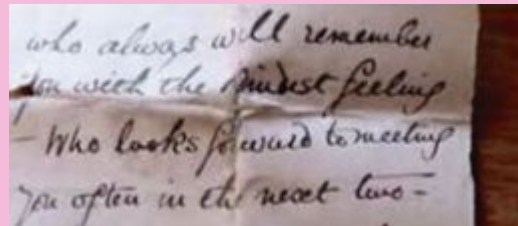 who always will remember
you with the kindest feeling
- Who looks forward to meeting
you often in the next two -